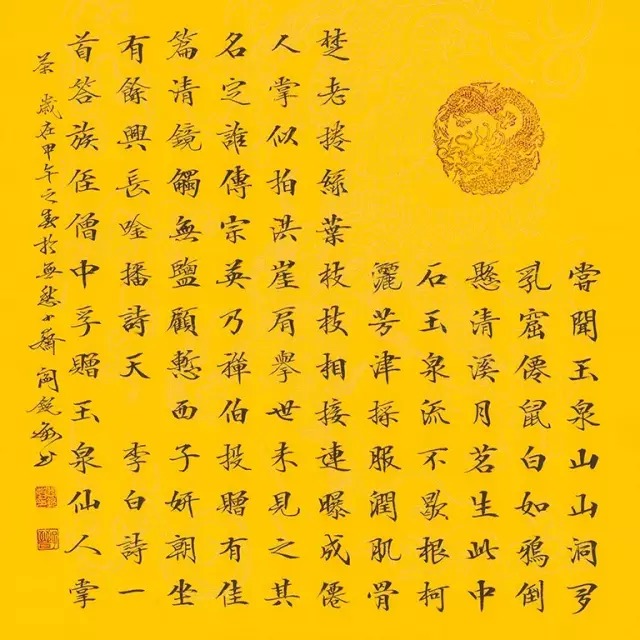 嘗聞玉泉山山洞多
乳窟僊鼠白如鴉倒
懸清溪月茗生此中
石玉泉流不歇根柯
灑芳津採服潤肌骨
楚老捲綠葉枝枝相接連曝成僊
人掌似拍洪崖肩舉世未見之其
名定誰傳宗英乃禪伯投贈有佳
篇清鏡觸無鹽顧慙西子妍朝坐
有餘興長唫播詩天 李白詩一
首答族侄僧中孚贈玉泉仙人掌
茶 歲在甲午之春於無愁小齋